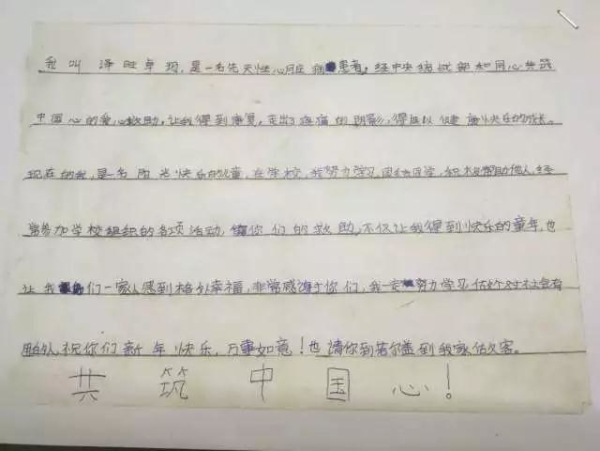 我叫泽旺卓玛,是一名先天性心脏病患者,经中央统战部和同心共筑
中国心的爱心救助,让我得到康复,走出了疼痛的阴影,得以健康快乐的成长。
现在的我,是一名阳光快乐的儿童,在学校,我努力学习,团结同学,积极帮助他人,经
常参加学校组织的各项活动,你们的救助,不仅让我得到快乐的童年,也
让我们一家人感到格外幸福,非常感谢你们,我一定努力学习,做个对社会有
用的人,祝你们新年快乐,万事如意!也请你到若尔盖到我家做客。
共筑中国心!